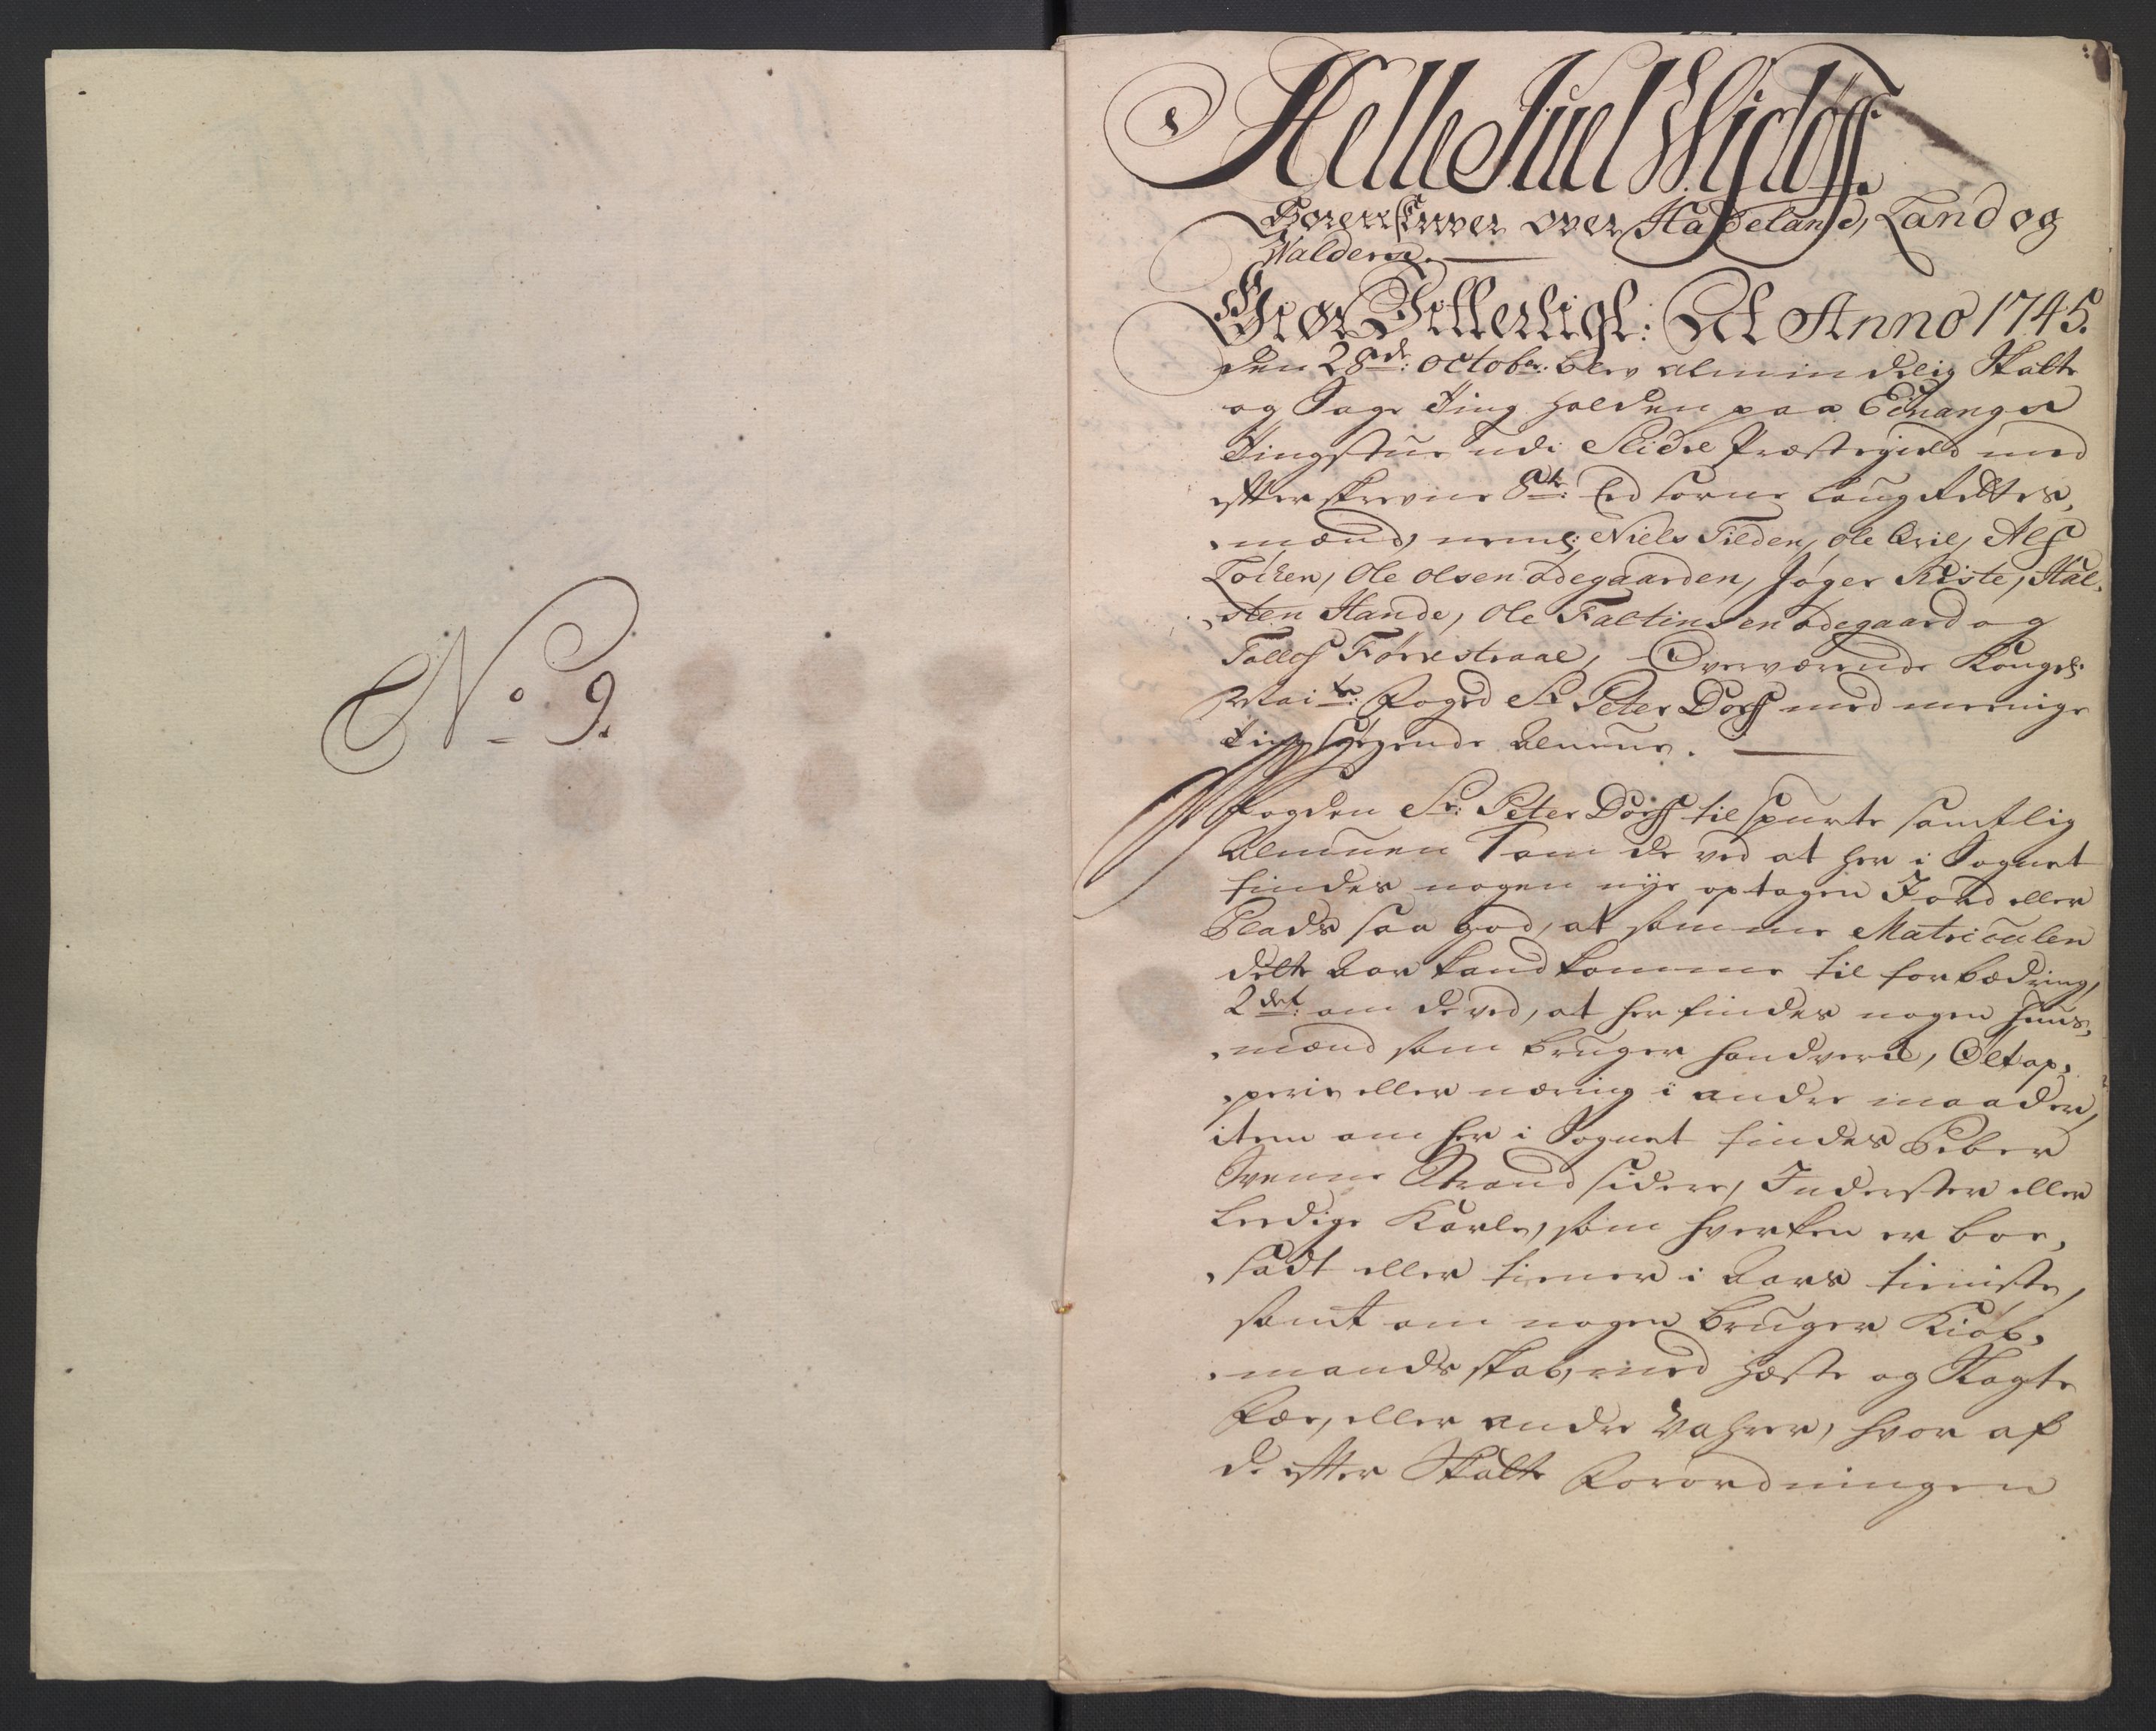 No 9.
Helle Juel Wjdløff.
Sorenskriver over Hadeland, Land og
Walders.
Giør Vitterligt: At Anno 1745.
den 28de: Octobr: blev almindelig Skatte
og Sage Ting holden paa Echanger
Tingstue udi Slidre Præstegield med
efterskrevne 8te Eedsorne Laug Rettes,
,mænd, neml: Niels Tilden, Ole Qvie, Alf
Løcken, Ole Olsen ødegaarden, Jøger Riste, Hal,
,sten Hande, Ole Faltinsen ødegaard og
Tollof Førrestraae, Overværende Kongel:
Mai ts: Foged Sr Peter Dorff med meenige
Tingsøgende Almue.
Fogden Sr: Peter Dorff tilspurte samtlig
Almuen 1 om de ved at her i Sognet
findes nogen nye optagen Jord eller
Plads saa god, at samme Matriculen
dette Aar kand komme til forbædring,
2det: om de ved, at her findes nogen Huus,
,mænd som bruger handverck, Øltap,
,perie eller næring i andre maader,
item om her i Sognet findes Peber
Svenne Strandsidere, Inderster eller
Leedige Karle, som hverken er boe,
,sadt eller tiener i Aars tieniste,
samt om nogen bruger Kiøb,
,mandskab, med Hæste og Slagte
Fæe, eller andre Vahrer, hvor af
de efter Skatte Forordningen